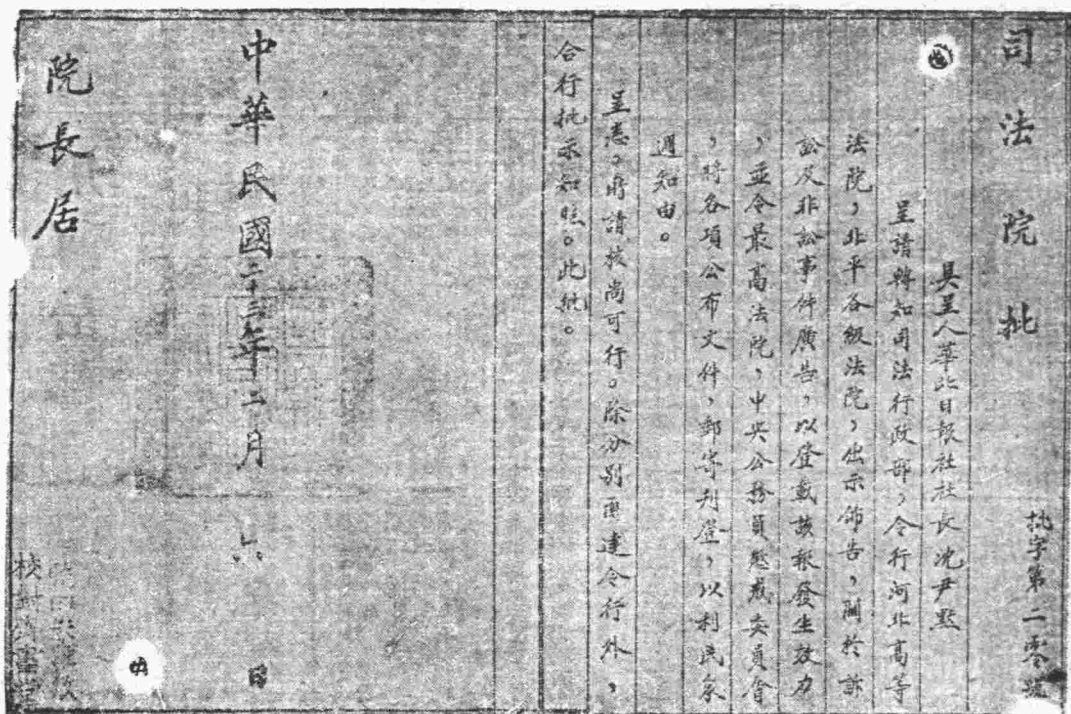 司法院批
批字第二零號
具呈人華北日報社社長沈尹默
呈請轉知司法行政部，令行河北高等
法院，北平各級法院，出示佈告，關於訴
訟及非訟事件廣告，以登載該報發生效力
，並令最高法院，中央公務員懲戒委員會
，將各項公布文件，郵寄刊登，以利民眾
週知由。
呈悉，所請核尚可行。除分別函達令行外，
合行批示知照。此批。
中華民國二十三年二月六日
院長居
校對